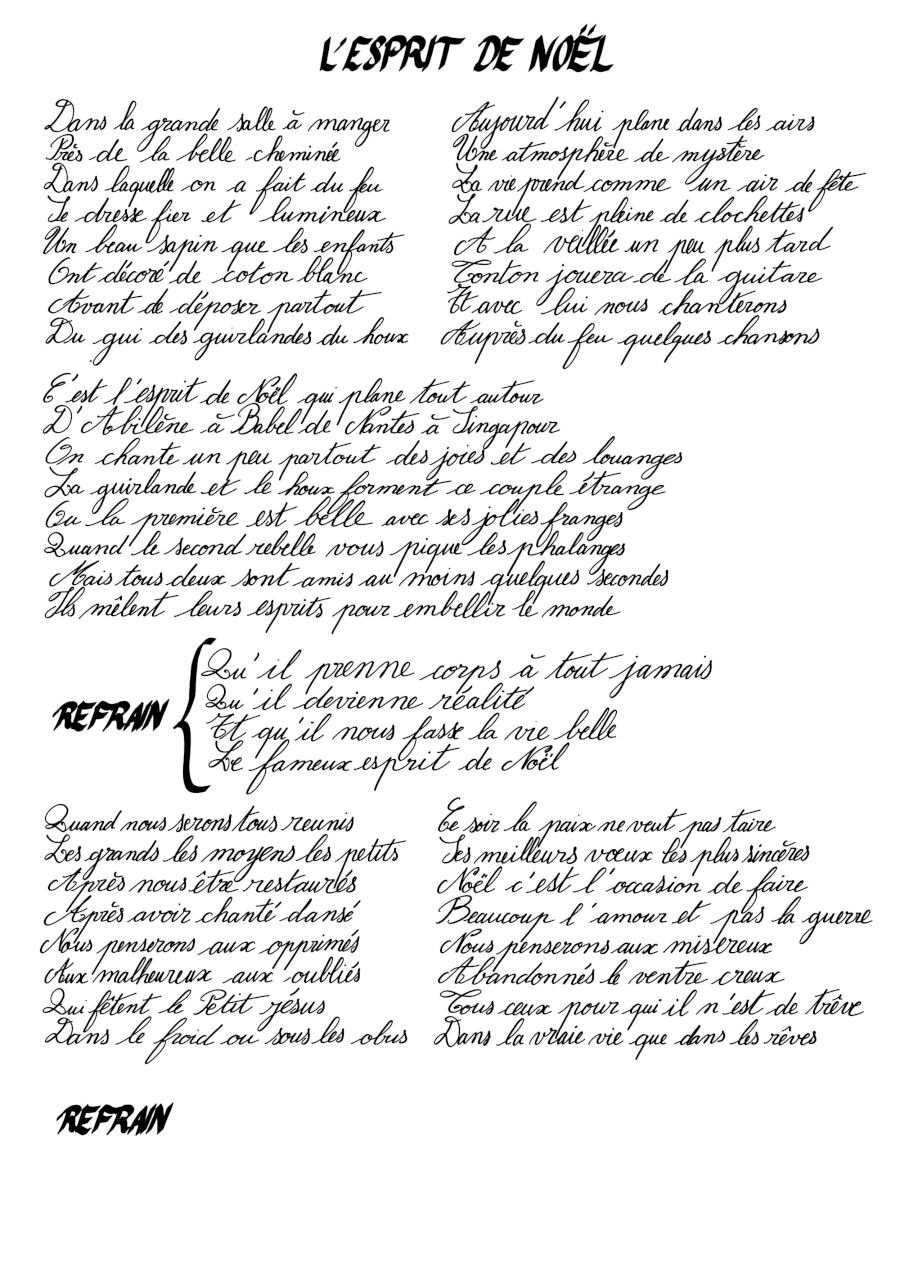 L'ESPRIT DE NOËL
Dans la grande salle à manger
Près de la belle cheminée
Dans laquelle on a fait du feu
Se dresse fier et lumineux
Un beau sapin que les enfants
Ont décoré de coton blanc
Avant de déposer partout
Du gui des guirlandes du houx
Aujourd'hui plane dans les airs
Une atmosphère de mystère
La vie prend comme un air de fête
La rue est pleine de clochettes
A la veillée un peu plus tard
Tonton jouera de la guitare
Et avec lui nous chanterons
Auprès du feu quelques chansons
C'est l'esprit de Noël qui plane tout autour
D'Abilène à Babel de Nantes à Singapour
On chante un peu partout des joies et des louanges
La guirlande et le houx forment ce couple étrange
Ou la première est belle avec ses jolies franges
Quand le second rebelle vous pique les phalanges
Mais tous deux sont amis au moins quelques secondes
Ils mêlent leurs esprits pour embellir le monde
REFRAIN
Qu'il prenne corps à tout jamais
Qu'il devienne réalité
Et qu'il nous fasse la vie belle
Le fameux esprit de Noël
Quand nous serons tous reunis
Les grands les moyens les petits
Après nous être restaurés
Après avoir chanté dansé
Nous penserons aux opprimés
Aux malheureux aux oubliés
Qui fêtent le Petit jésus
Dans le froid ou sous les obus
Ce soir la paix ne veut pas taire
Ses meilleurs vœux les plus sincères
Noël c'est l'occasion de faire
Beaucoup l'amour et pas la guerre
Nous penserons aux miséreux
Abandonnés le ventre creux
Tous ceux pour qui il n'est de trêve
Dans la vraie vie que dans les rêves
REFRAIN